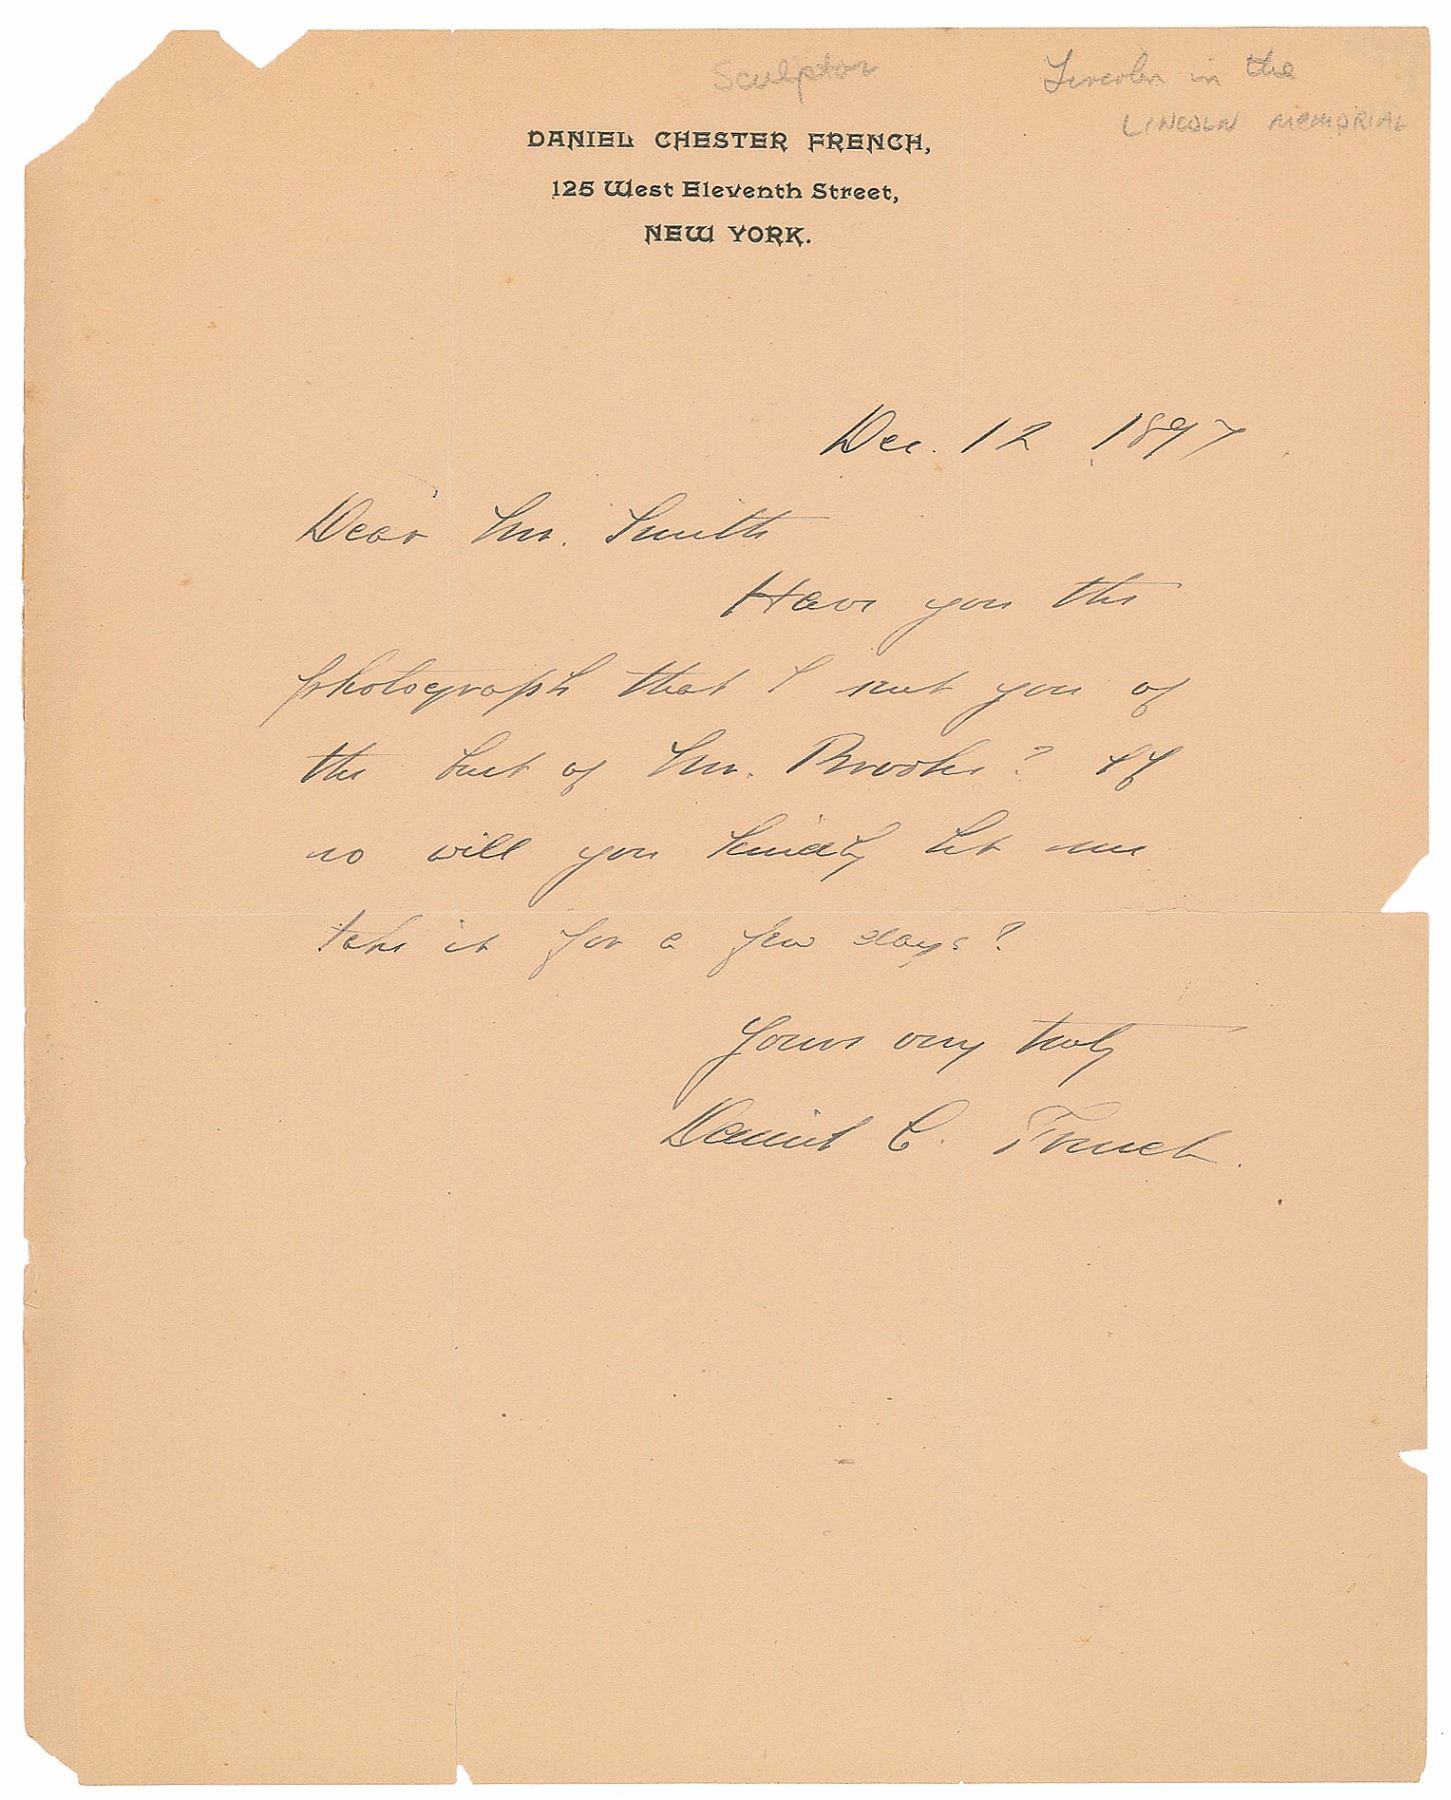 Sculptor
Lincoln in the
LINCOLN MEMORIAL
DANIEL CHESTER FRENCH,
125 West Eleventh Street,
NEW YORK.
Dec. 12 1897
Dear Mr. Smith
Have you the
photograph that I sent you of
the bust of Mr. Brooks? If
so will you kindly let me
take it for a few days?
Yours very truly
Daniel C. French.